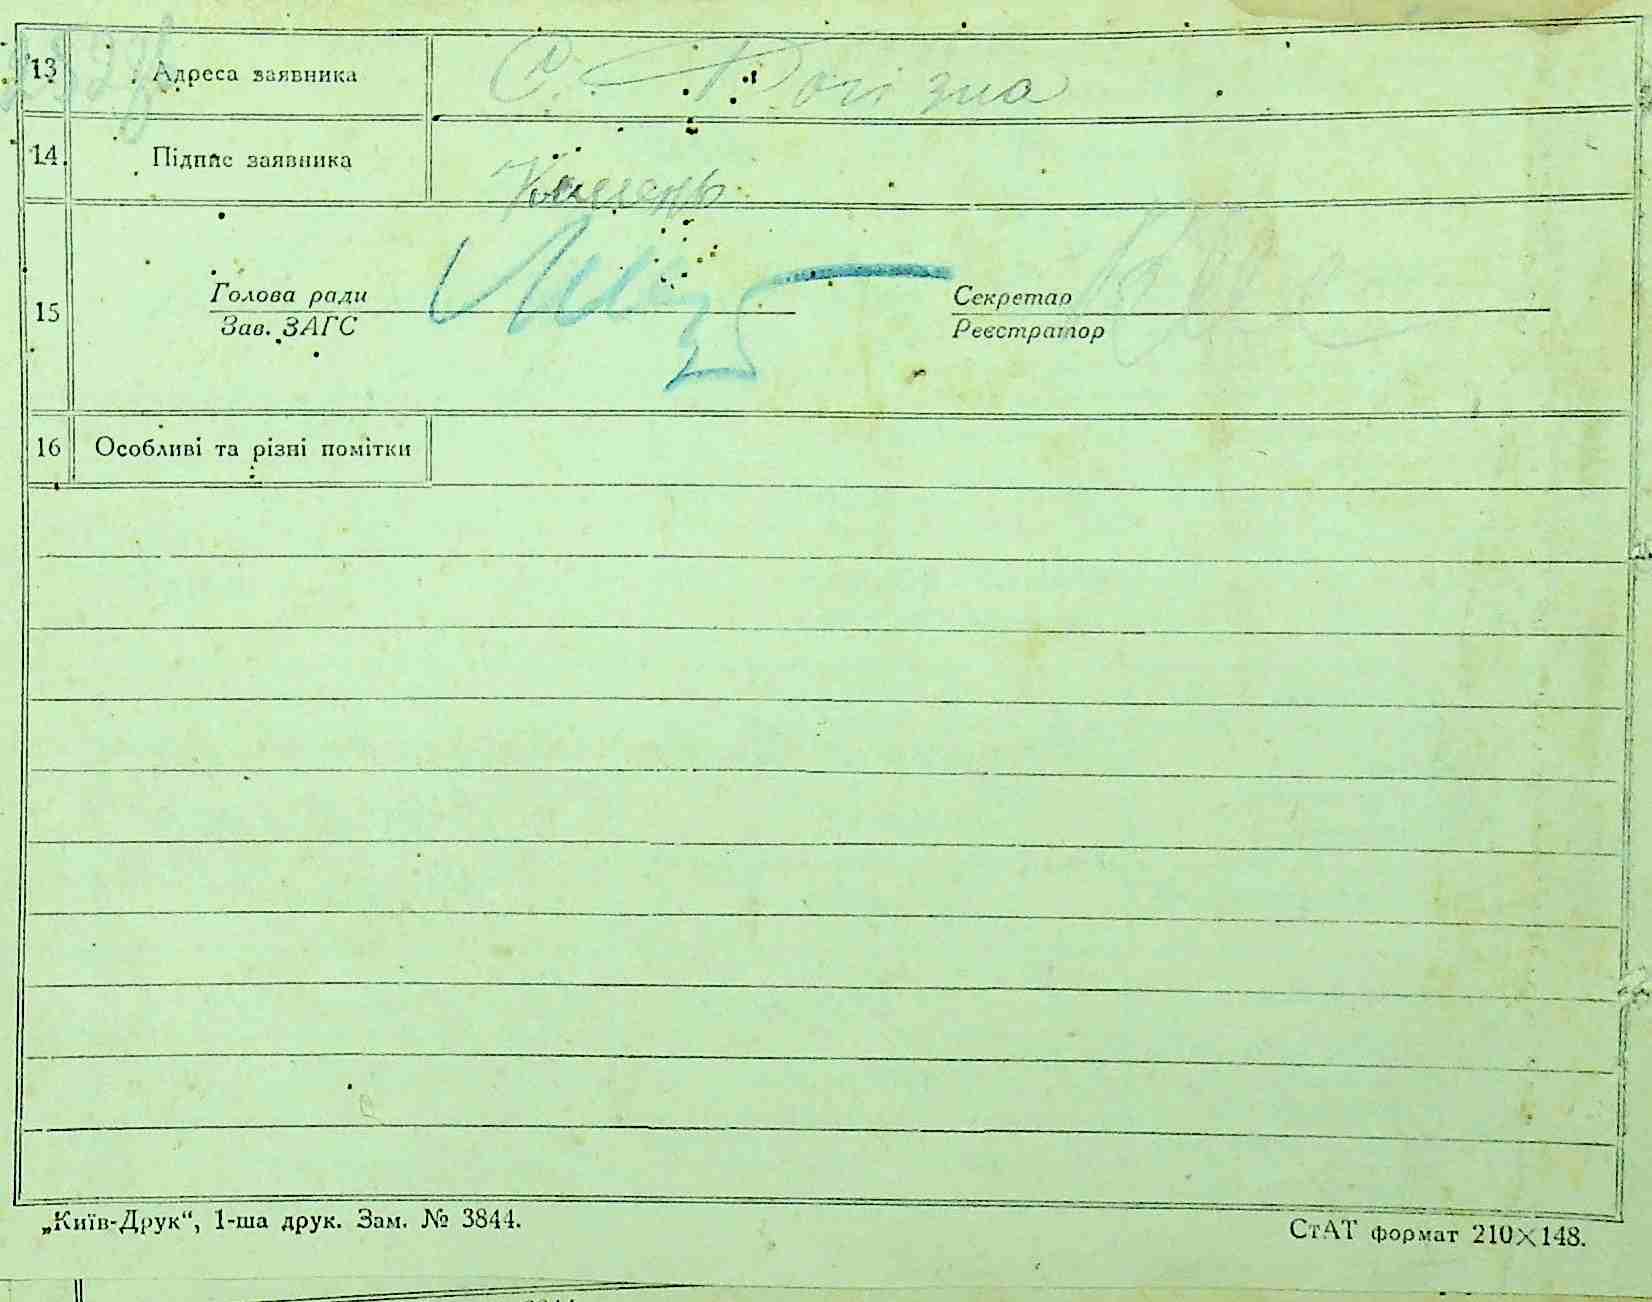 13 Адреса заявника С. Рогізна
14. Підпис заявника Камень
Голова ради Секретар
15
Зав. ЗАГС Реєстратор
16 Особливі та різні помітки
„Київ-Друк“, 1-ша друк. Зам. № 3844. СтАТ формат 210×148.